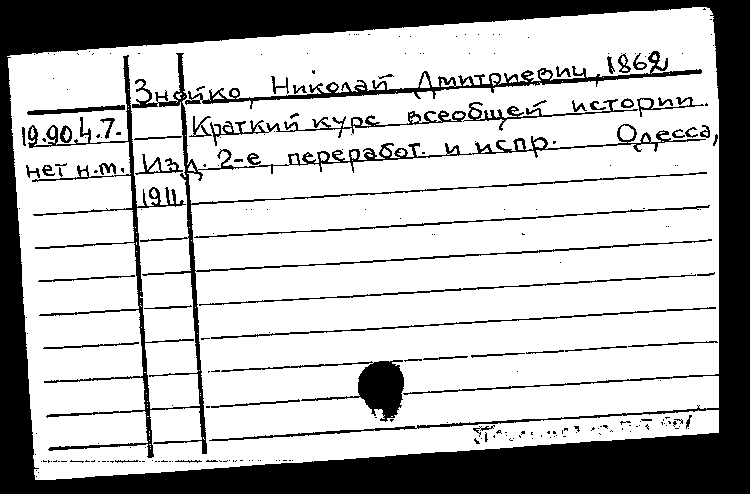 Знойко, Николай Дмитриевич, 1862
19.90.4.7. Краткий курс всеобщей истории.
нет н.т. Изд. 2-е, переработ. и испр. Одесса,
1911.